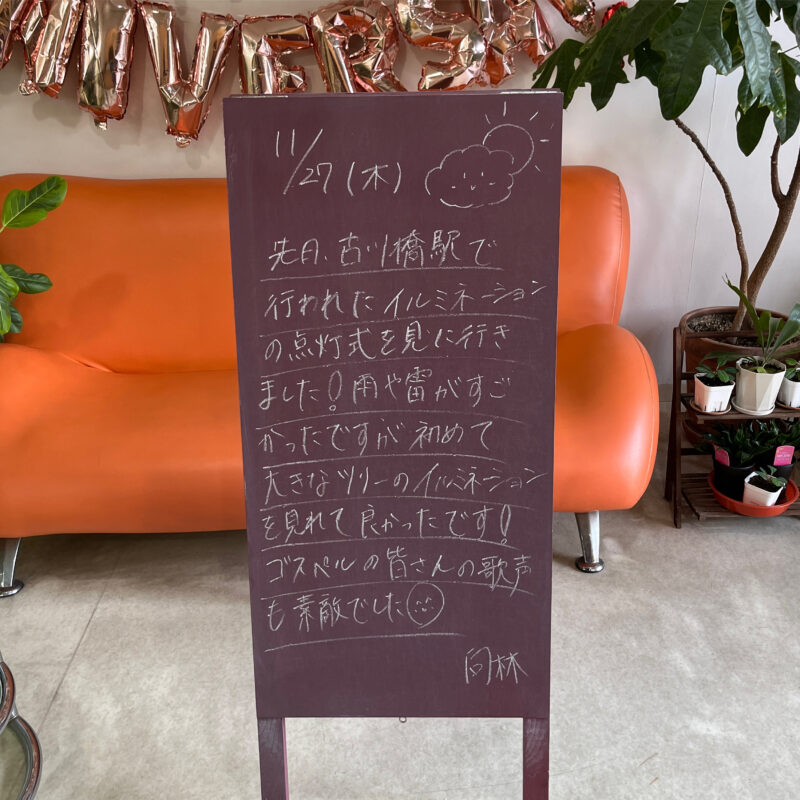 NIVERSA
11/27(木)
先日、古川橋駅で
行われたイルミネーション
の点灯式を見に行き
ました!雨や雷がすご
かったですが初めて
大きなツリーのイルミネーション
を見れて良かったです!
ゴスペルの皆さんの歌声
も素敵でした
向林